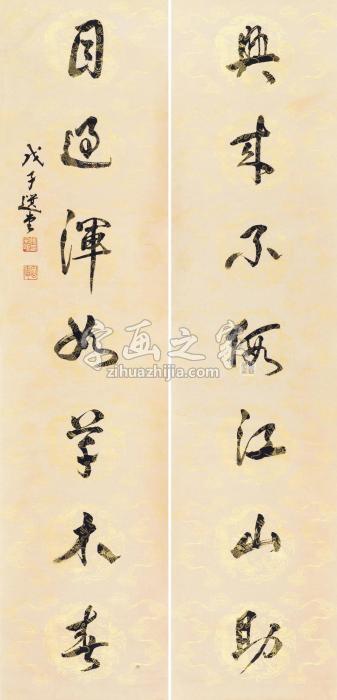 興來不假江山助
目過渾如草木春
戊子選堂
字画之家
zihuazhijia.com